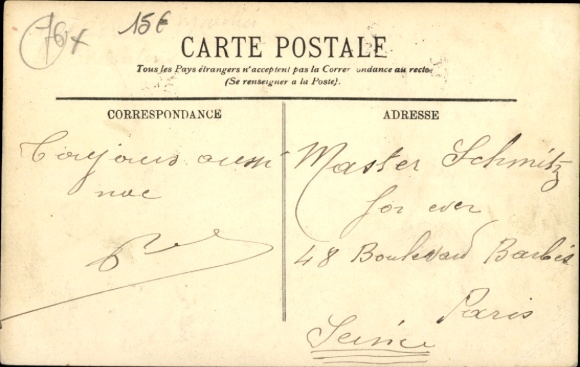 76x
15€
CARTE POSTALE
Tous les Pays étrangers n'acceptent pas la Corres ondance au recto
(Se renseigner a la Poste).
CORRESPONDANCE
ADRESSE
Toujours aussi
noc
Master Schmitz
for ever
48 Boulevard Barbès
Paris
Seine